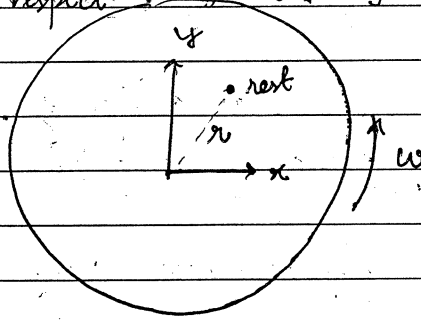 respect
y
rest
r
x
ω